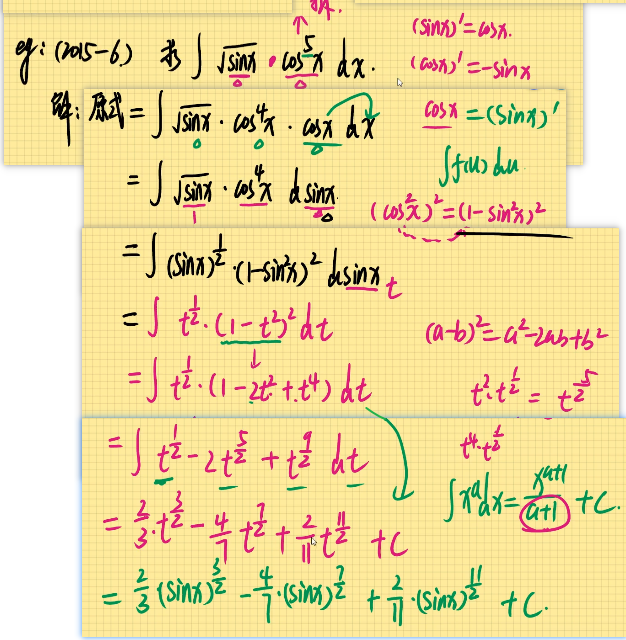 (sinx)'=cosx.
eg: (2015-6) 求 ∫ √sinx · cos⁵x dx.
(cosx)'=-sinx
解: 原式 = ∫ √sinx · cos⁴x · cosx dx
cosx = (sinx)'
= ∫ √sinx · cos⁴x dsinx
∫f(u)du
(cos²x)²=(1-sin²x)²
= ∫ (sinx)^(1/2) · (1-sin²x)² dsinx t
= ∫ t^(1/2) · (1-t²)² dt
(a-b)²=a²-2ab+b²
= ∫ t^(1/2) · (1-2t²+t⁴) dt
t²·t^(1/2) = t^(5/2)
= ∫ t^(1/2) - 2t^(5/2) + t^(9/2) dt
t⁴·t^(1/2)
∫x^a dx = x^(a+1)/(a+1) + C.
= 2/3 · t^(3/2) - 4/7 t^(7/2) + 2/11 t^(11/2) + C
= 2/3 · (sinx)^(3/2) - 4/7 · (sinx)^(7/2) + 2/11 · (sinx)^(11/2) + C.